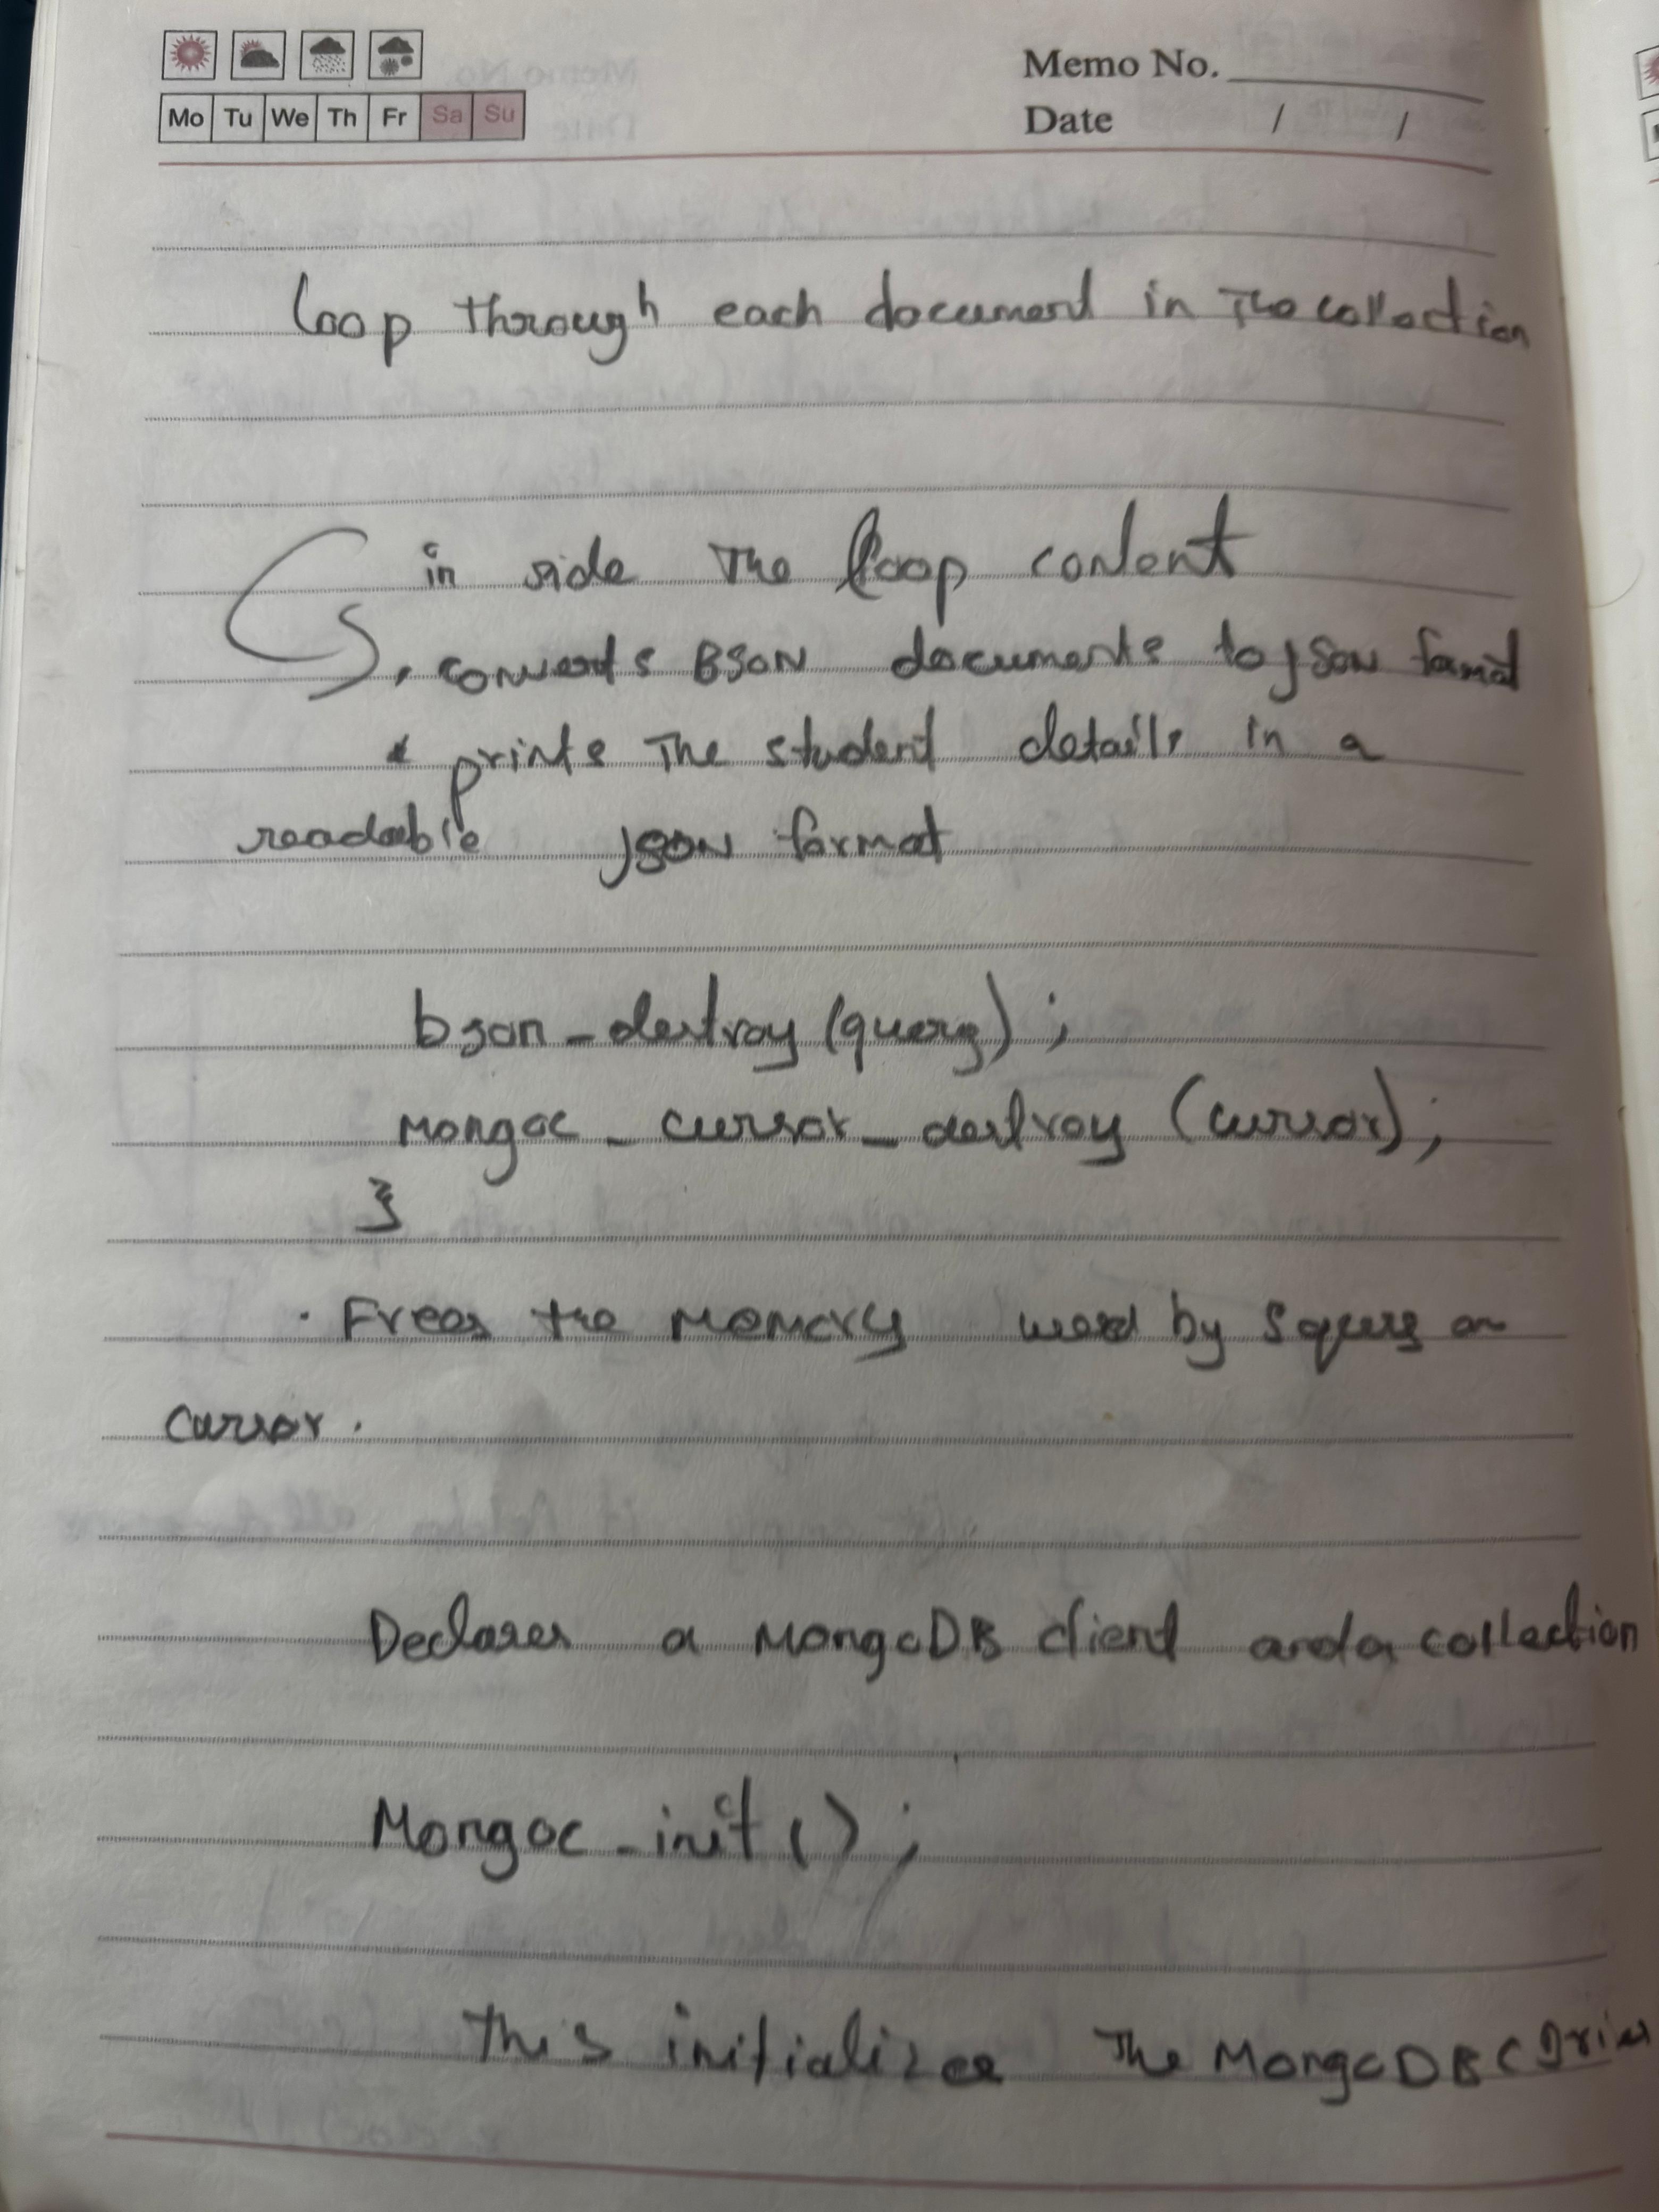 Memo No.
Mo Tu We Th Fr Sa Su
Date / /
loop through each document in The collection
in side The loop content
converts BSON documents to JSON format
& prints The student details in a
readable JSON format
bson_destroy (query) ;
Mongoc_cursor_destroy (cursor);
}
· Frees the Memory used by
cursor.
Declares a MongoDB client and a collection
Mongoc_init();
This initializes The MongoDB C